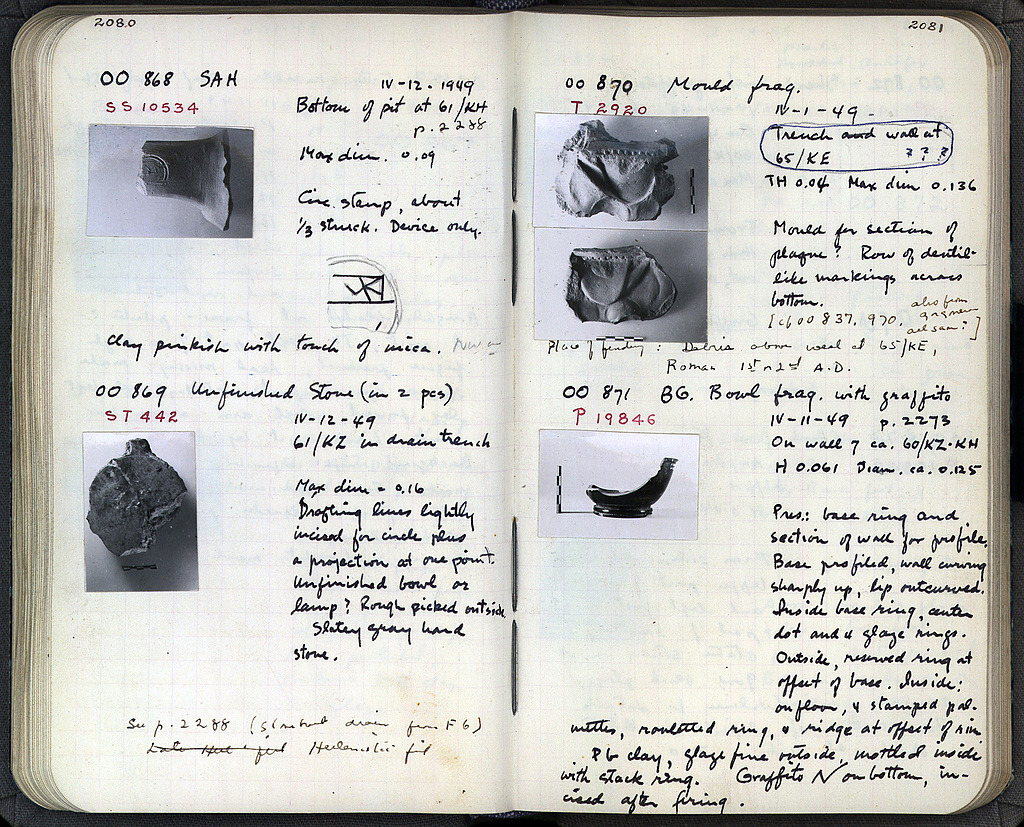 2080
OO 868 SAH
SS 10534
IV-12-1949
Bottom of pit at 61/KH
p. 2288
Max dim. 0.09
Circ. stamp, about
1/3 struck. Device only.
Clay pinkish with touch of mica.
OO 869 Unfinished Stone (in 2 pcs)
ST 442
IV-12-49
61/KZ in drain trench
Max dim = 0.16
Drafting lines lightly
incised for circle plus
a projection at one point.
Unfinished bowl or
lamp? Rough picked outside.
Slatey gray hard
stone.
See p. 2288 (
Hellenistic fil
2081
OO 870 Mould frag.
T 2920
IV-1-49
Trench and wall at
65/KE ? ? ?
TH 0.04 Max dim 0.136
Mould for section of
plaque? Row of dentil-
like markings across
bottom.
[cf OO 837, 970, also from
Place of finding: Debris above wall at 65/KE,
Roman 1st-2nd A.D.
OO 871 BG. Bowl frag. with graffito
P 19846
IV-11-49 p. 2273
On wall 7 ca. 60/KZ-KH
H 0.061 Diam. ca. 0.125
Pres.: base ring and
section of wall for profile.
Base profiled, wall curving
sharply up, lip outcurved.
Inside base ring, center
dot and 4 glaze rings.
Outside, reserved ring at
offset of base. Inside:
on floor, 4 stamped pal-
mettes, rouletted ring, & ridge at offset of rim
Pb clay, glaze fine outside, mottled inside
with stack ring. Graffito N on bottom, in-
cised after firing.